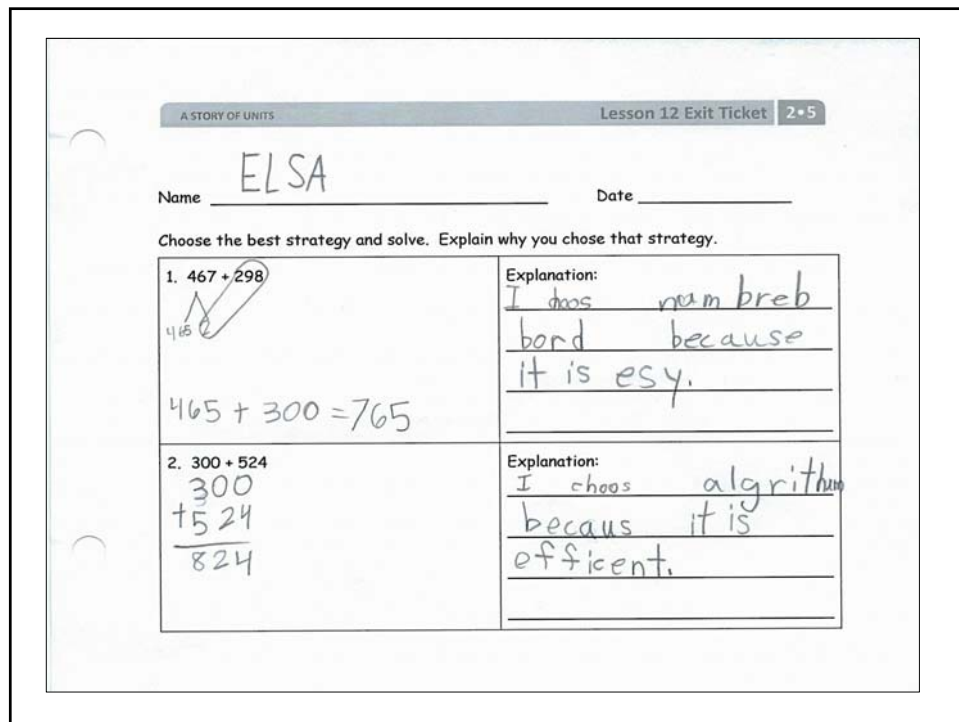 A STORY OF UNITS
Lesson 12 Exit Ticket 2•5
Name ELSA
Date
Choose the best strategy and solve. Explain why you chose that strategy.
1. 467 + 298
465 2
465 + 300 = 765
Explanation:
I choos num breb
bord because
it is esy.
2. 300 + 524
300
+524
824
Explanation:
I choos algrithum
becaus it is
efficent.